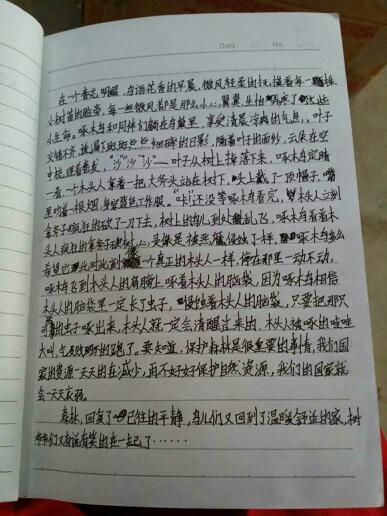 Date. No.
在一个春光明媚,鸟语花香的早晨,微风轻柔的抚摸着每一株
小树苗的脸旁,每一丝微风都是那么小心翼翼,生怕弄疼了这些
小生命。啄木鸟和同伴们躺在鸟巢里,享受清晨凉爽的气息,叶子
交错不齐,披满了斑斑点点细碎的日影,隔着叶子的面纱,云朵在空
中梳理着卷发,“沙”“沙”“沙”一叶子从树上掉落下来,啄木鸟定睛
一看,一个木头人拿着一把大斧头站在树下,头上戴了一顶帽子,嘴
里叼着一根烟,身穿蓝色工作服。“咔”!还没等啄木鸟看完,木头人立刻
拿斧子疯狂的砍了一刀下去,树上的鸟儿到处乱飞,啄木鸟看着木
头人疯狂的拿斧子砍树,心灵像是被恶魔侵蚀了一样,啄木鸟多么
希望它此时此刻是一个真正的木头人一样,停在那里一动不动,
啄木鸟飞到木头人的肩膀上啄着木头人的脑袋,因为啄木鸟相信
木头人的脑袋里一定长了虫子,侵蚀着木头人的脑袋,只要把那只
虫子啄出来,木头人就一定会清醒过来的,木头人被啄的哇哇
大叫,气及败坏的跑了。要知道,保护森林是很重要的事情,我们国
家的资源一天天的在减少,再不好好保护自然资源,我们的国家就
会一天天衰弱。
森林,回复了已往的平静,鸟儿们又回到了温暖舒适的家,树
爷爷们又有说有笑的在一起了……